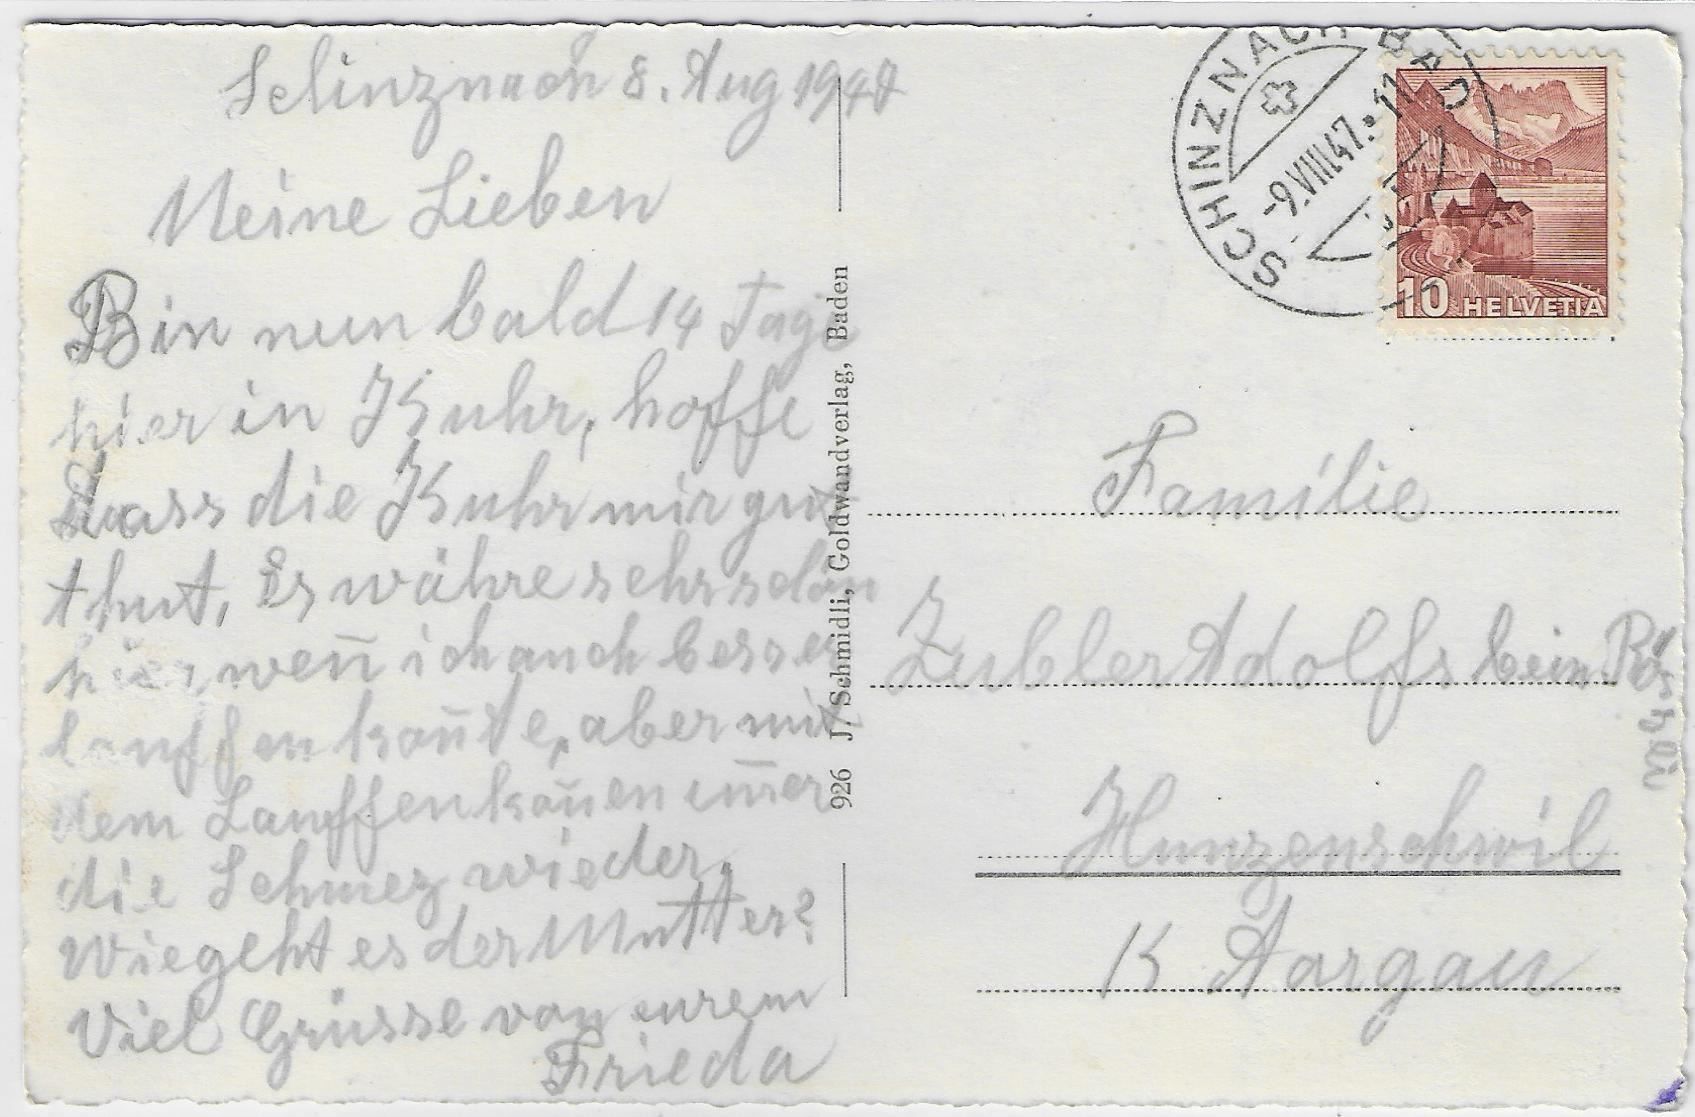 Schinznach 8. Aug 1947
Meine Lieben
Bin nun bald 14 Tage
hier in Kuhr, hoffe
dass die Kuhr mir gut
thut, Es währe sehr schön
hier, wen̄ ich auch besser
lauffen kon̄te, aber mit
dem Lauffen kom̄en im̄er
die Schmez wieder,
Wie geht es der Mutter?
Viel Grüsse von eurem
Frieda
926 J. Schmidli, Goldwandverlag, Baden
SCHINZNACH BAD
-9.VIII.47.•11
10 HELVETIA
Familie
Zubler Adolfs beim Rösli
Hunzenschwil
K Aargau